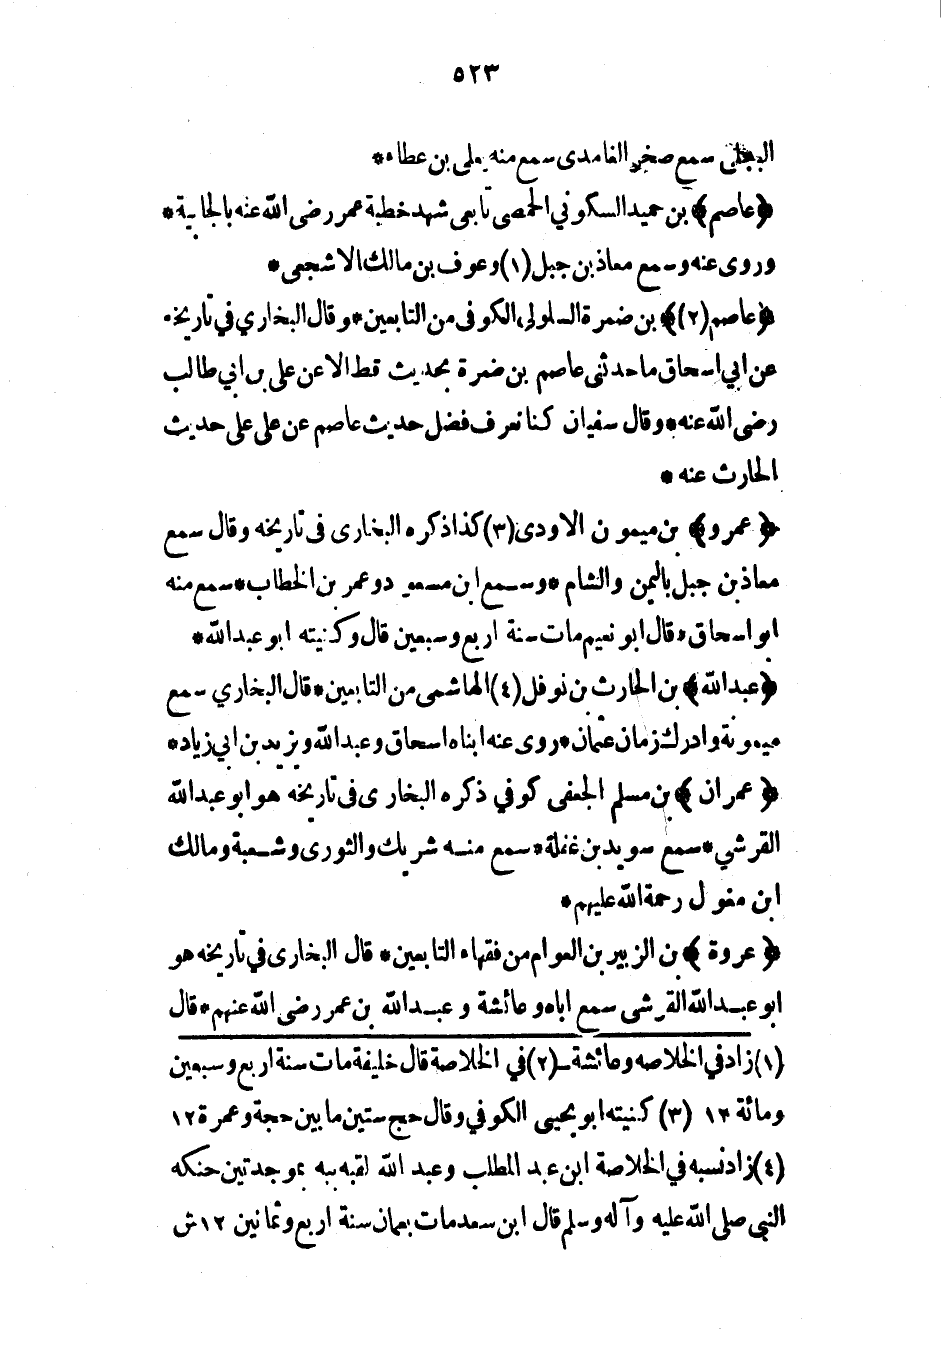 ٥٢٣
البجلى سمع صخر الغامدى سمع منه يعلى بن عطاء*
﴿عاصم﴾ بن حميد السكوني الحمصى تابعى شهد خطبة عمر رضى الله عنه بالجابية*
وروى عنه وسمع معاذ بن جبل (١) وعوف بن مالك الاشجعى*
﴿عاصم (٢)﴾ بن ضمرة السلولى الكوفى من التابعين* وقال البخاري في تاريخه
عن ابي اسحاق ما حدثنى عاصم بن ضمرة بحديث قط الا عن على بن ابي طالب
رضى الله عنه* وقال سفيان كنا نعرف فضل حديث عاصم عن على على حديث
الحارث عنه*
﴿عمرو﴾ بن ميمون الاودى (٣) كذا ذكره البخارى فى تاريخه وقال سمع
معاذ بن جبل باليمن والشام* وسمع ابن مسعود وعمر بن الخطاب* سمع منه
ابو اسحاق* قال ابو نعيم مات سنة اربع وسبعين قال وكنيته ابو عبد الله*
﴿عبد الله﴾ بن الحارث بن نوفل (٤) الهاشمى من التابعين* قال البخاري سمع
ميمونة وادرك زمان عثمان* روى عنه ابناه اسحاق وعبد الله ويزيد بن ابي زياد*
﴿عمران﴾ بن مسلم الجعفى كوفي ذكره البخارى فى تاريخه هو ابو عبد الله
القرشي* سمع سويد بن غفلة* سمع منه شريك والثورى وشعبة ومالك
ابن مغول رحمة الله عليهم*
﴿عروة﴾ بن الزبير بن العوام من فقهاء التابعين* قال البخارى في تاريخه هو
ابو عبد الله القرشى سمع اباه وعائشة وعبد الله بن عمر رضى الله عنهم* قال
(١) زاد في الخلاصه وعائشة ــ (٢) في الخلاصة قال خليفة مات سنة اربع وسبعين
ومائة ١٢ (٣) كنيته ابو يحيى الكوفي وقال حج ستين ما بين حجة وعمرة ١٢
(٤) زاد نسبه في الخلاصة ابن عبد المطلب وعبد الله لقبه ببه بموحدتين حنكه
النبي صلى الله عليه وآله وسلم قال ابن سعد مات بعمان سنة اربع وثمانين ١٢ ش